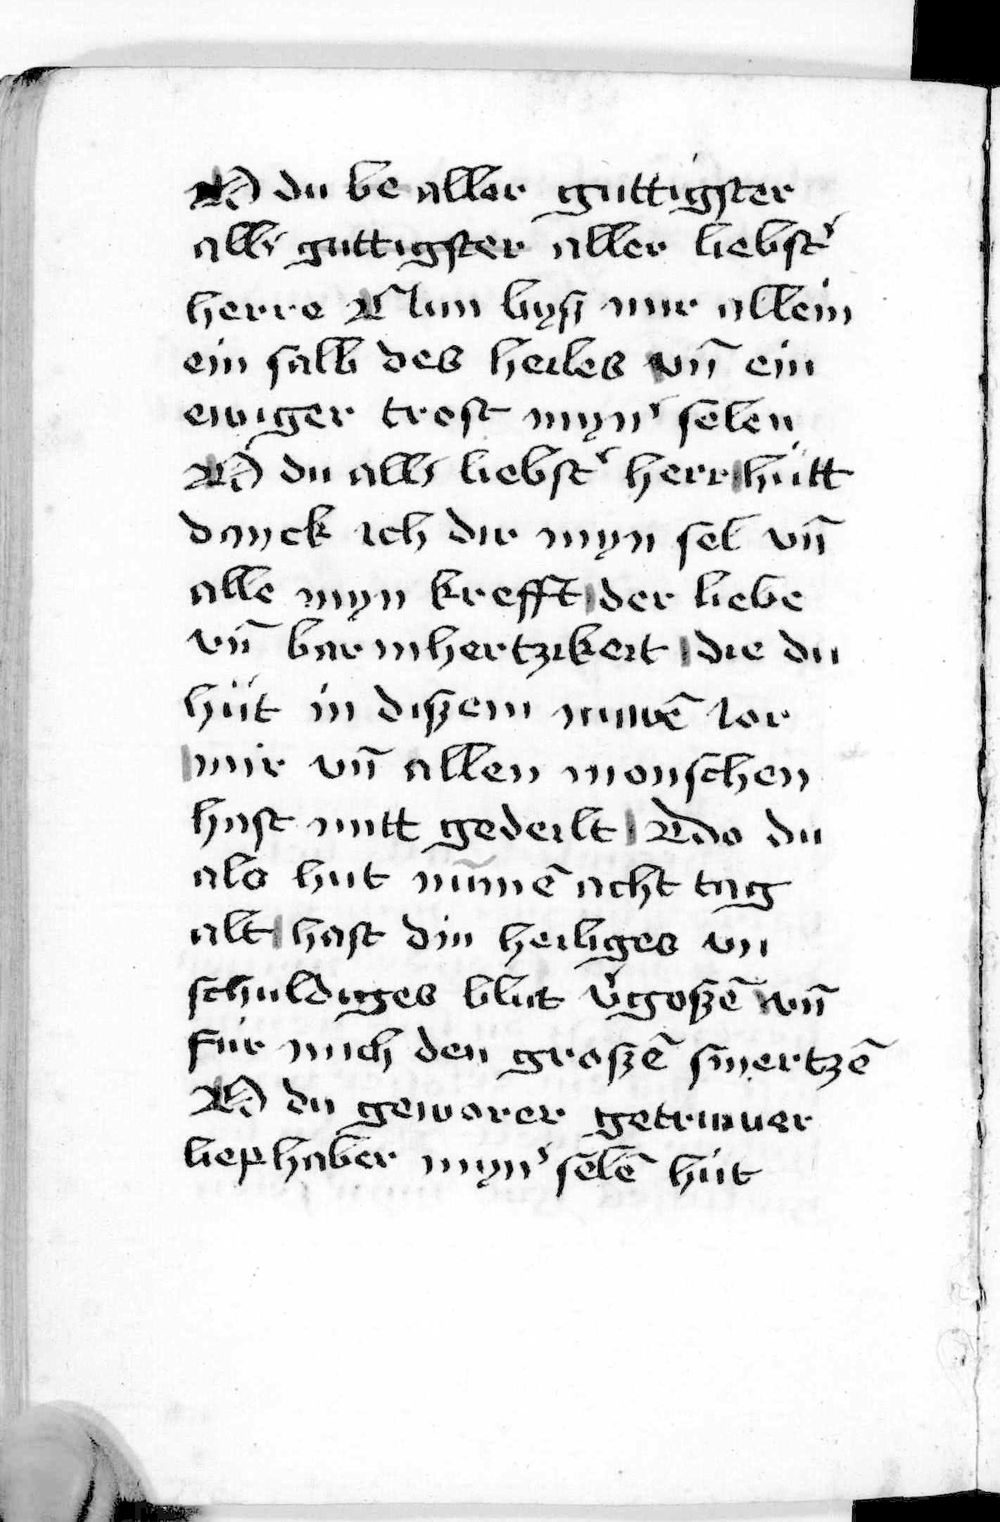 O du be aller guttigster
allʼ guttigster aller liebstʼ
herre Nun biß mir allein
ein salb des heiles vn̄ ein
ewiger trost mynʼ selen
O du allʼ liebstʼ herr hütt
danck ich dir myn sel vn̄
alle myn krefft der liebe
vn̄ barmhertzikeit die du
hüt in dißem nuwē Jor
mir vn̄ allen monschen
hast mitt gedeilt Do du
als hut nūmē acht tag
alt hast din heiliges vn
schuldiges blut vʼgoßē vn̄
für mich den großē smertzē
O du geworer getruwer
liephaber mynʼ selē hüt